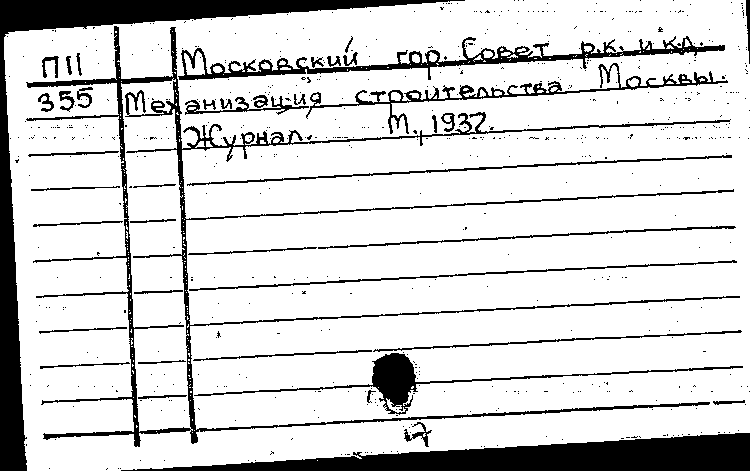 П11 Московский гор. Совет р.к. и к.д.
355 Механизация строительства Москвы.
Журнал. М., 1932.
17